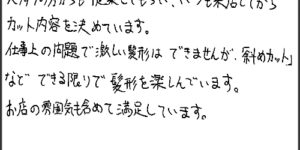 カット内容を決めています。
仕事上の問題で激しい髪形は できませんが、「斜めカット」
など できる限りで髪形を楽しんでいます。
お店の雰囲気も含めて満足しています。